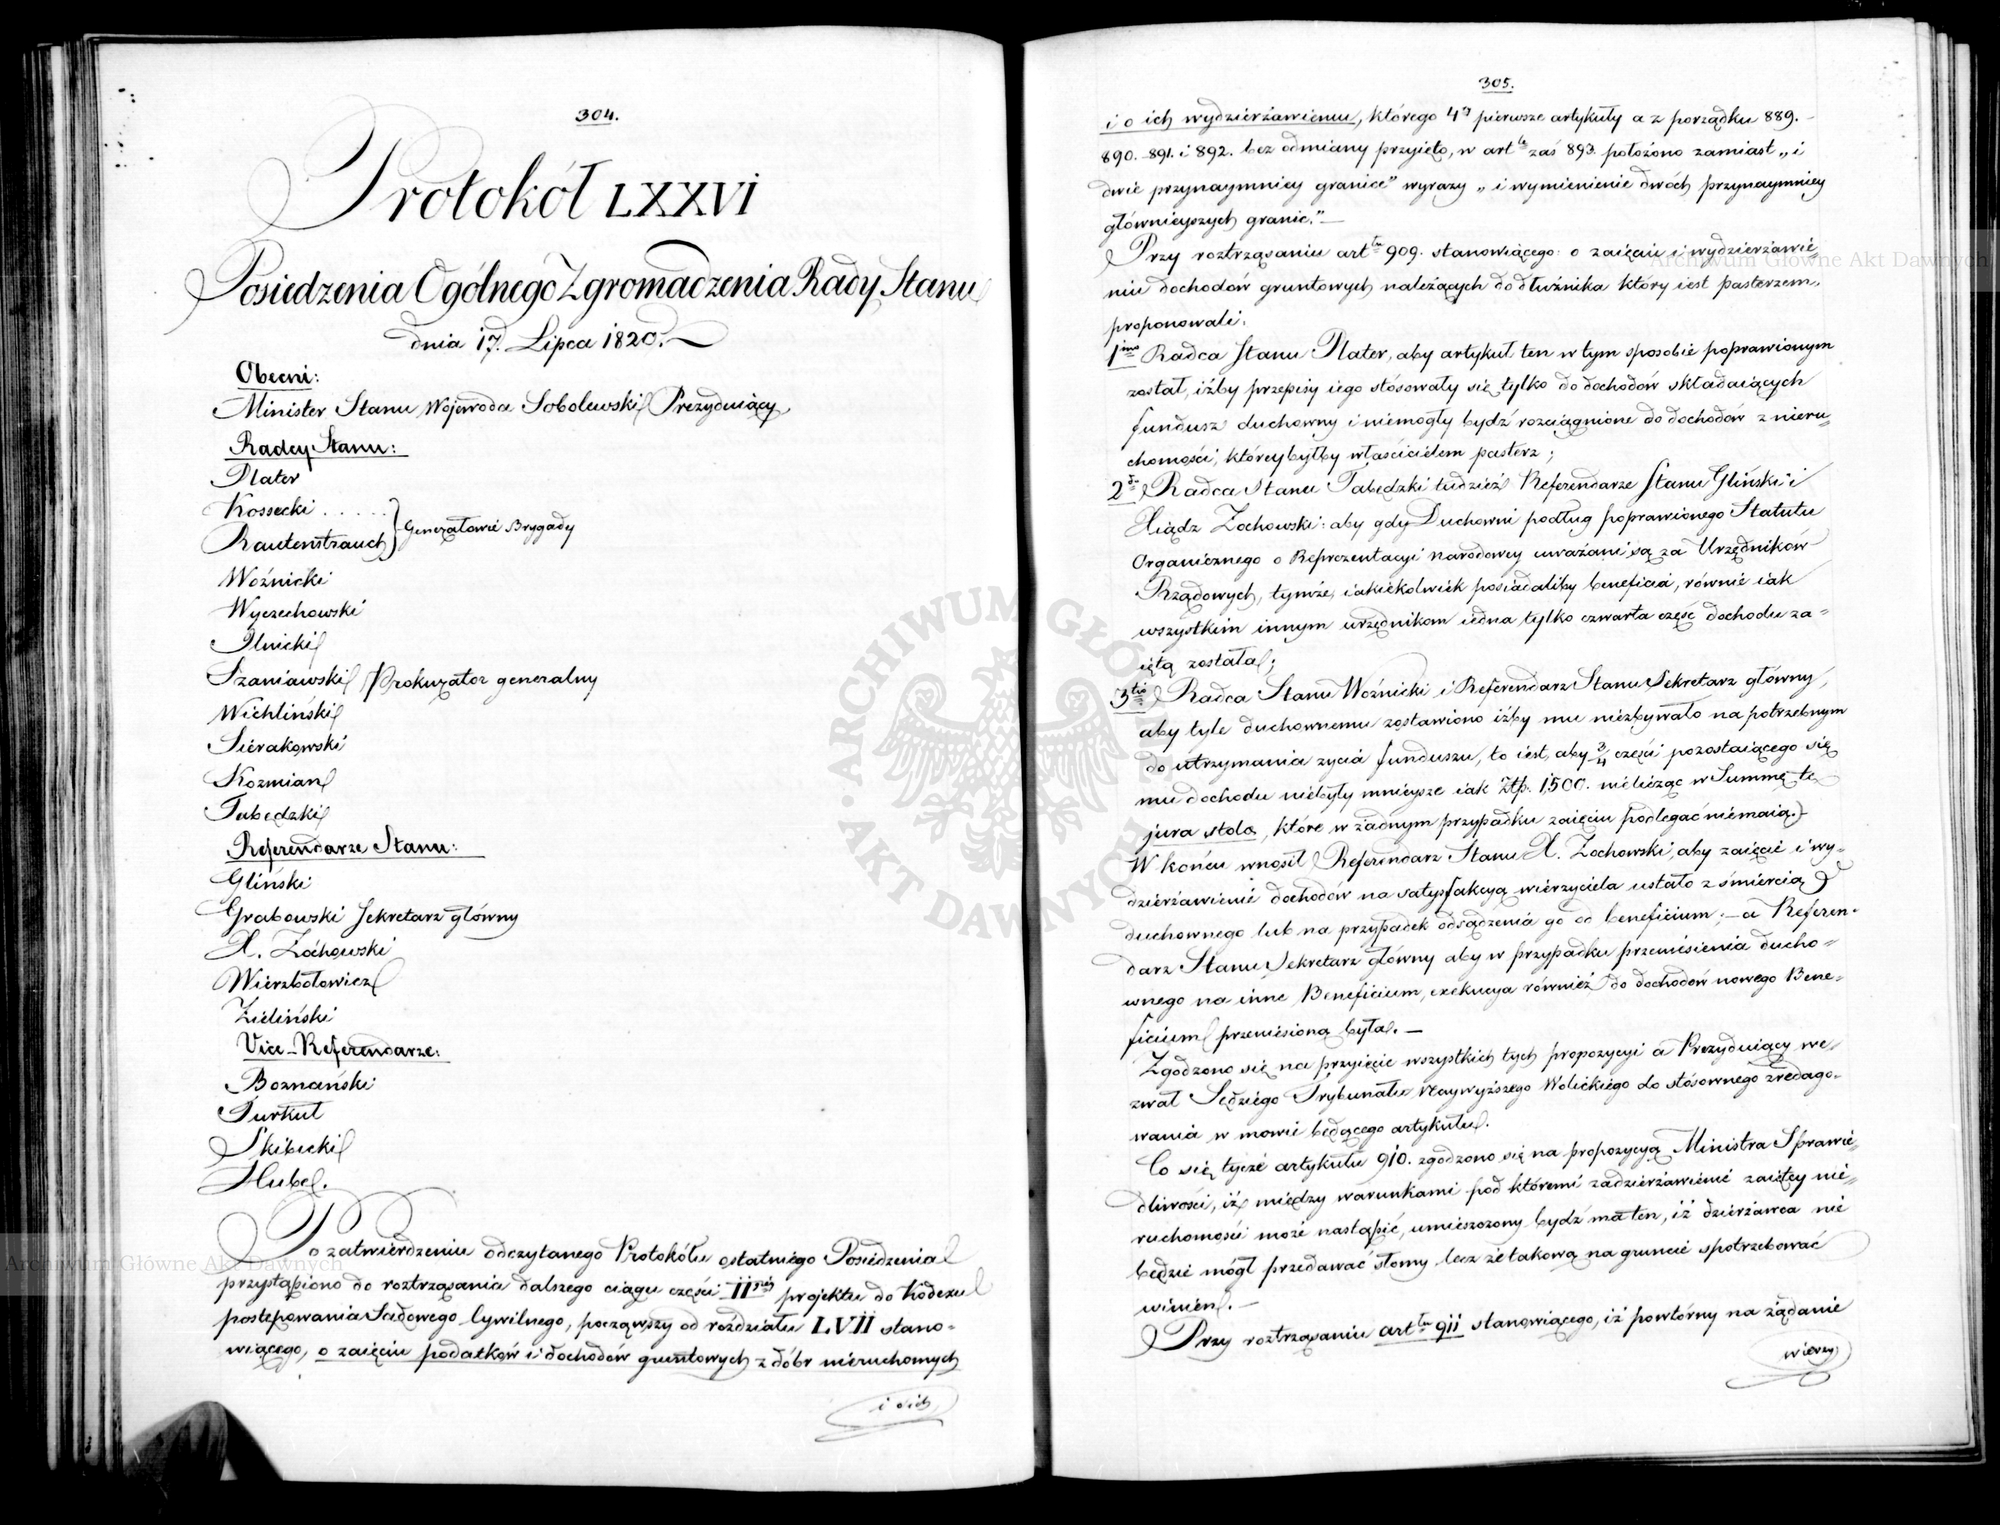 304.
Protokół LXXVI
Posiedzenia Ogólnego Zgromadzenia Rady Stanu
dnia 17. Lipca 1820.
Obecni:
Minister Stanu Wojewoda Sobolewski Prezyduiący
Radcy Stanu:
Plater
Kossecki . . . . . } Generałowie Brygady
Rautenstrauch
Woźnicki
Wyczechowski
Ilnicki
Szaniawski Prokurator generalny
Wichliński
Sierakowski
Kozmian
Tabędzki
Referendarze Stanu:
Gliński
Grabowski Sekretarz główny
X. Zochowski
Wierzbołowicz
Zieliński
Vice-Referendarze:
Boznański
Turkuł
Skibicki
Hube.
Po zatwierdzeniu odczytanego Protokółu ostatniego Posiedzenia
przystąpiono do roztrząsania dalszego ciągu części II projektu do Kodexu
postępowania Sądowego Cywilnego, począwszy od rozdziału LVII stano-
wiącego, o zaięciu podatków i dochodów gruntowych z dóbr nieruchomych
i o ich
305.
i o ich wydzierżawieniu, którego 4ry pierwsze artykuły a z porządku 889.
890. 891. i 892. bez odmiany przyięto, w artle zaś 893. położono zamiast „i
dwie przynaymniey granice" wyrazy „i wymienienie dwóch przynaymniey
główniejszych granic."—
Przy roztrząsaniu arttu 909. stanowiącego: o zaięciu i wydzierżawie-
niu dochodów gruntowych należących do dłużnika który iest pasterzem,
proponowali:
1mo Radca Stanu Plater, aby artykuł ten w tym sposobie poprawionym
został, iżby przepisy iego stósowały się tylko do dochodów składaiących
fundusz duchowny i niemogły bydź rozciągnione do dochodów z nieru-
chomości, któreybyłby właścicielem pasterz;
2do Radca Stanu Tabędzki tudzież Referendarze Stanu Gliński i
Xiądz Zochowski: aby gdy Duchowni podług poprawionego Statutu
Organicznego o Reprezentacyi narodowey uważani są za Urzędników
Rządowych, tymże, iakiekolwiek posiadaliby beneficia, równie iak
wszystkim innym urzędnikom iedna tylko czwarta część dochodu za-
iętą została;
3tio Radca Stanu Woźnicki i Referendarz Stanu Sekretarz główny,
aby tyle duchownemu zostawiono iżby mu niezbywało na potrzebnym
do utrzymania życia funduszu, to iest, aby 3/4 części pozostaiącego się
mu dochodu niebyły mnieysze iak Złp. 1,500. nieliczac w Summę tę
jura stola, które w żadnym przypadku zaięciu podlegać niemaią.
W końcu wnosił Referendarz Stanu X. Zochowski, aby zaięcie i wy-
dzierżawienie dochodów na satysfakcyą wierzyciela ustało z śmiercią
duchownego lub na przypadek odsądzenia go od beneficium; — a Referen-
darz Stanu Sekretarz główny aby w przypadku przeniesienia ducho-
wnego na inne Beneficium, exekucya również do dochodów nowego Bene-
ficium przeniesioną była. —
Zgodzono się na przyięcie wszystkich tych propozycyi a Prezyduiący we-
zwał Sędziego Trybunału Naywyższego Wolickiego do stósownego zredago-
wania w mowie będącego artykułu.
Co się tycze artykułu 910. zgodzono się na propozycyą Ministra Sprawie-
dliwości, iż między warunkami pod któremi zadzierżawienie zaiętey nie-
ruchomości może nastąpić, umieszczony bydź ma ten, iż dzierżawca nie
będzie mógł przedawać słomy lecz że takową na gruncie spotrzebować
winien. —
Przy roztrząsaniu arttu 911 stanowiącego, iż powtórny na żądanie
wierzy
ARCHIWUM GŁÓWNE AKT DAWNYCH
Archiwum Główne Akt Dawnych
Archiwum Główne Akt Dawnych